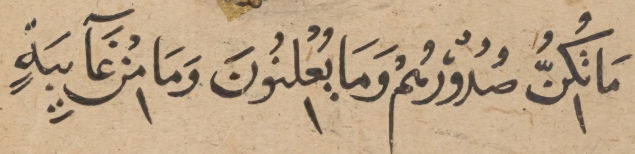 مَا تُكِنُّ صُدُورُهُمْ وَمَا يُعْلِنُونَ وَمَا مِنْ غَآئِبَةٍ